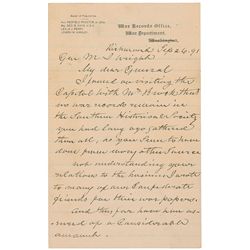 War Records Office,
War Department,
Washington,
Richmond Sep 26. 91
Gen M J Wright
My dear General
I find on visiting the
Capitol with Mr Brock that
no war records remain in
the Southern Historical Society
you had long ago gathered
them all, as you seem to have
done from every other source
not understanding your
relations to the business. I wrote
to many of our Confederate
friends for their war papers.
And thus far have been
a considerable
amount.